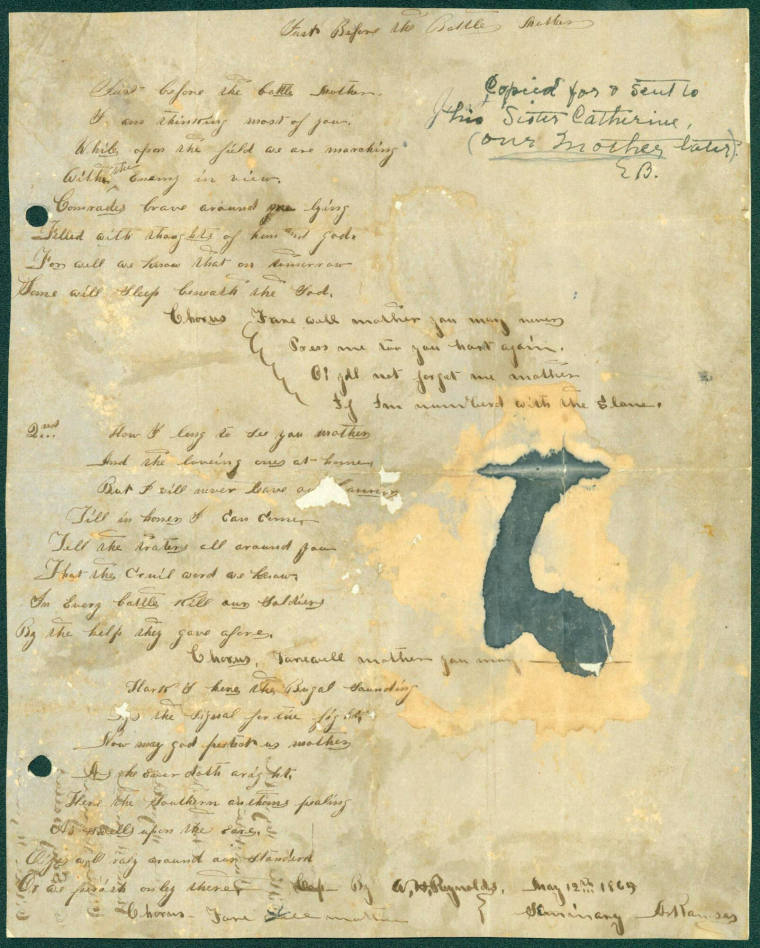 Just Before the Battle Mother
Copied for & sent to
his Sister Catherine,
(our Mother later).
E B.
Just before the battle Mother.
I am thinking most of you.
While upon the field we are marching
With the enemy in view.
Comrades brave around me lying
Filled with thoughts of home and god.
For well we know that on tomorrow
Some will sleep beneath the Sod.
Chorus Fare well mother you may never
Press me too you hart again.
O! you'll not forget me mother
If I'm numberd with the Slane.
2nd How I long to see you mother
And the loveing ones at home
But I will never leave our banner
Till in honer I can come
Tell the traters all around you
That the Cruil word we know
In Every battle kill our Soldiers
By the help they gave afore.
Chorus, Farewell mother you may
Hark I here the Bugal Sounding
the Signal for the fight
Now may god protect us mother
As he ever doth aright.
Here the Southern anthems pealing
As swells upon the eare.
will raly around our Standerd
Or we perish only there By W. H. Reynolds, May 12th 1869
Chorus Fare well mother Seminary Arkansas